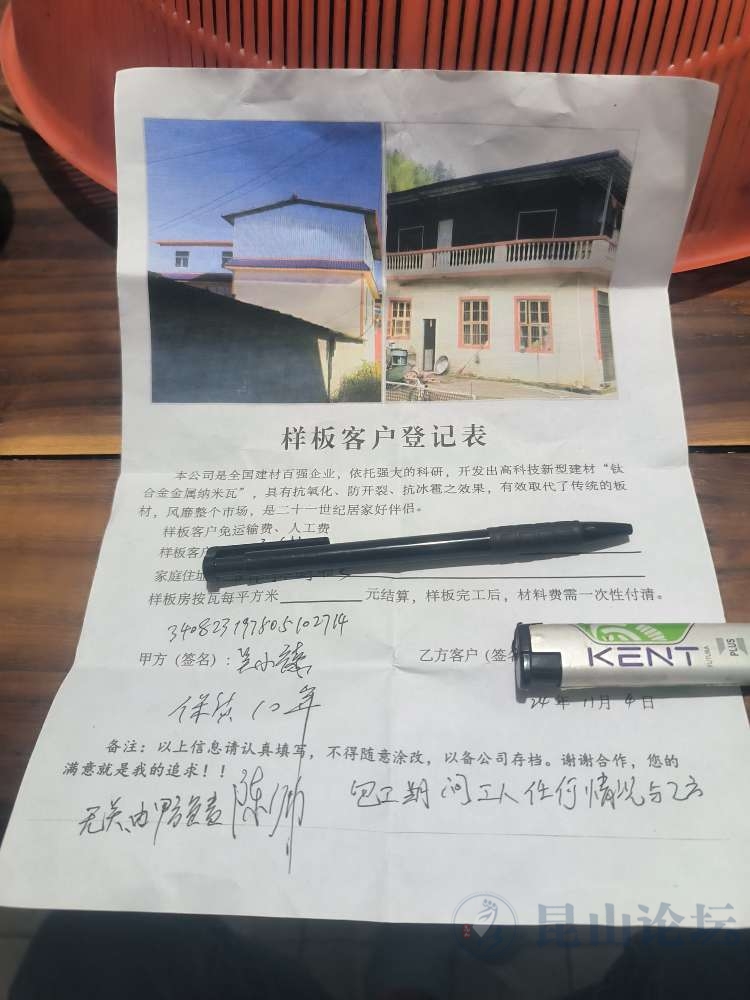 样板客户登记表
本公司是全国建材百强企业，依托强大的科研，开发出高科技新型建材“钛
合金金属纳米瓦”，具有抗氧化、防开裂、抗冰雹之效果，有效取代了传统的板
材，风靡整个市场，是二十一世纪居家好伴侣。
样板客户免运输费、人工费
样板客户
家庭住址
样板房按瓦每平方米 元结算，样板完工后，材料费需一次性付清。
340823197805102714
甲方（签名）： 吴小
乙方客户（签
KENT
FUTURA
PLUS
24年 11月 4日
保质10年
备注：以上信息请认真填写，不得随意涂改，以备公司存档。谢谢合作，您的
满意就是我的追求！！
包工期间工人任何情况与乙方
无关，由甲方负责 陈
昆山论坛